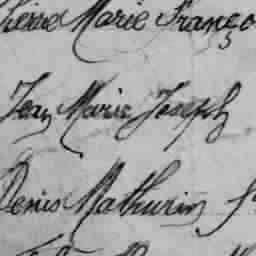 Pierre Marie Franço
Jean Marie Joseph
Denis Mathurin